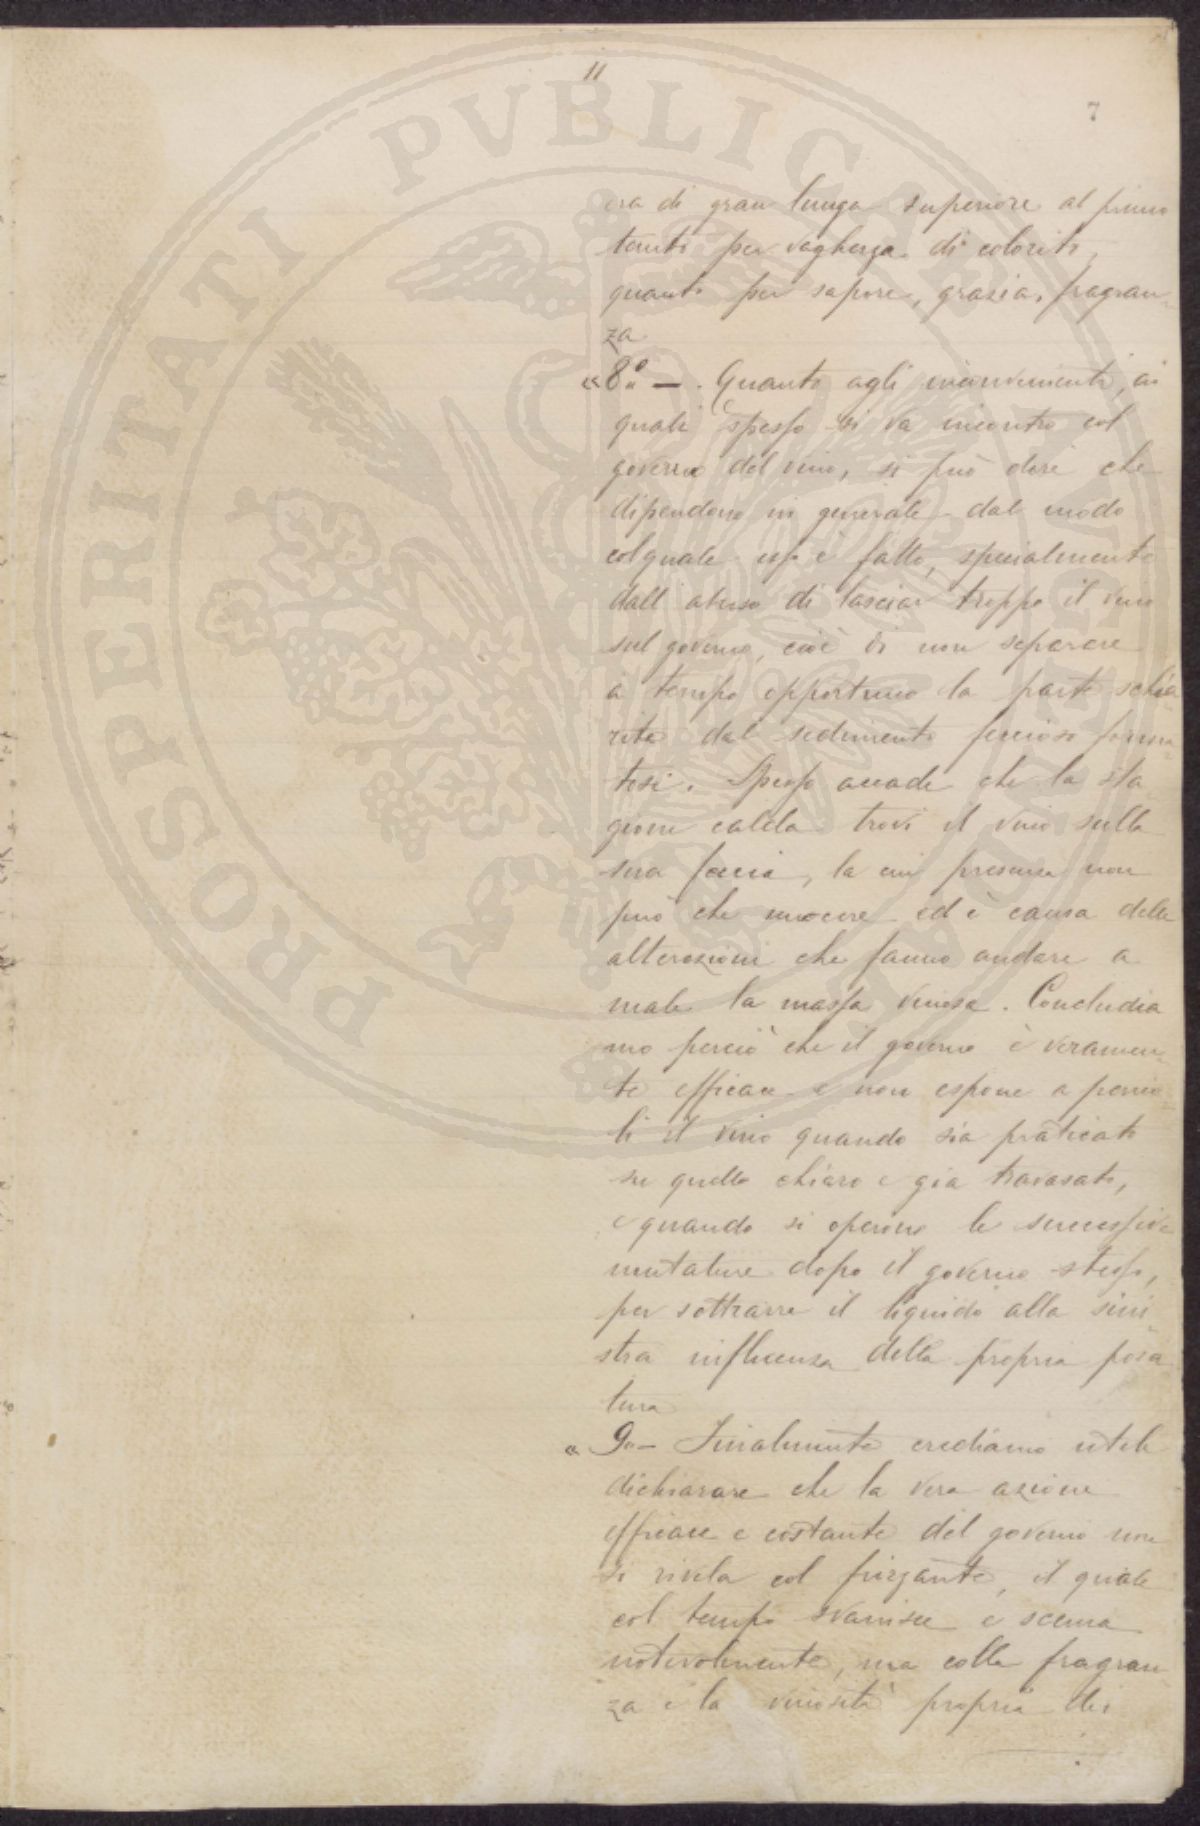 11
7
era di gran lunga superiore al primo
tanto per vaghezza di colorito,
quanto per sapore, grazia, fragran-
za
«8°. — . Quanto agli inconvenienti, ai
quali spesso si va incontro col
governo del vino, si può dire che
dipendono in generale dal modo
col quale esso è fatto, specialmente
dall'abuso di lasciar troppo il vino
sul governo, cioè di non separare
a tempo opportuno la parte schia-
rita dal sedimento feccioso forma-
tosi. Spesso accade che la sta
gione calda trovi il vino sulla
sua feccia, la cui presenza non
può che nuocere ed è causa delle
alterazioni che fanno andare a
male la massa vinosa. Concludia
mo perciò che il governo è veramen-
te efficace e non espone a perico-
li il vino quando sia praticato
su quello chiaro e già travasato,
e quando si operino le successive
mutature dopo il governo stesso,
per sottrarre il liquido alla sini-
stra influenza della propria posa
tura
« 9.. — Finalmente crediamo utile
dichiarare che la vera azione
efficace e costante del governo non
si rivela col frizzante, il quale
col tempo svanisce e scema
notevolmente, ma colla fragran
za e la vinosità propria dei
PROSPERITATI PVBLICAE AVGENDAE